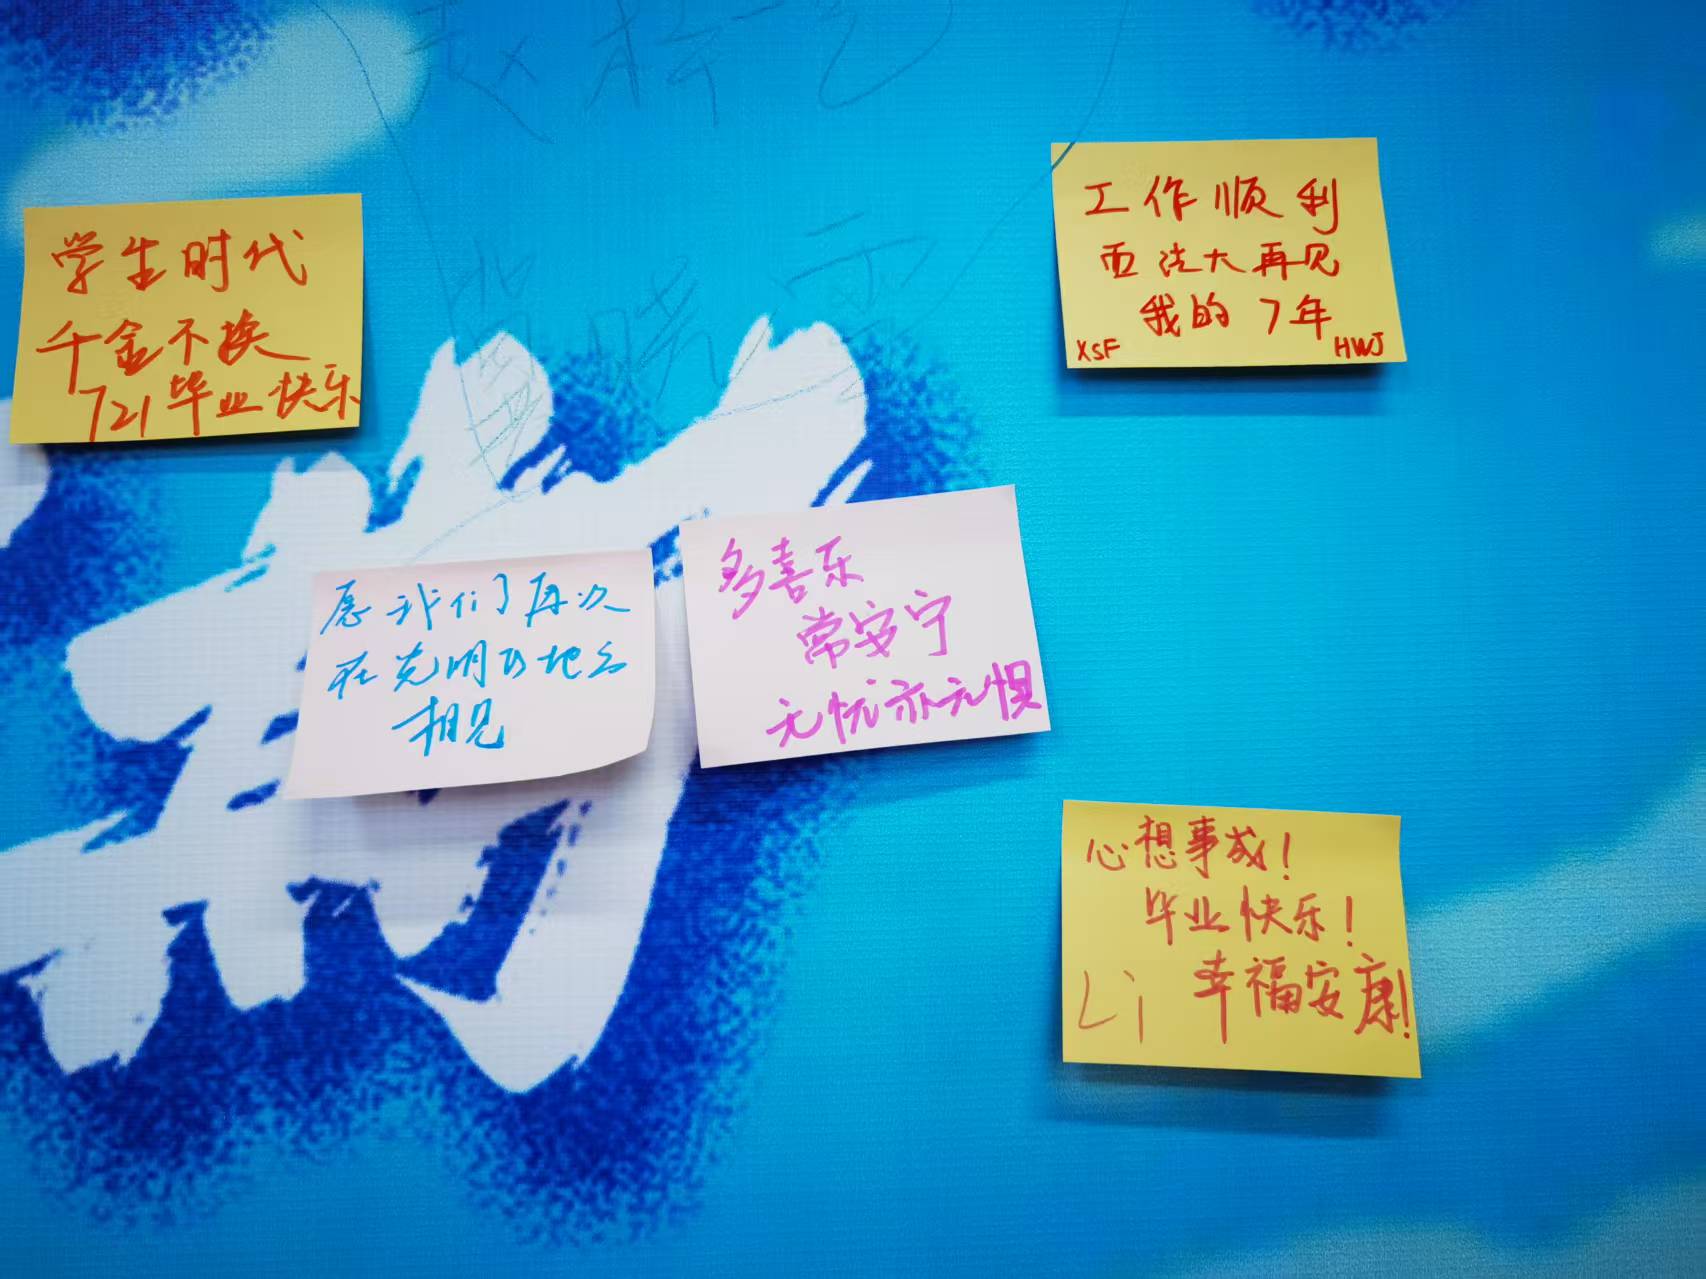 学生时代
千金不换
721毕业快乐
工作顺利
西法大再见
我的7年
XSF
HWJ
愿我们再次
在光明的地方
相见
多喜乐
常安宁
无忧亦无惧
心想事成!
毕业快乐!
Li 幸福安康!